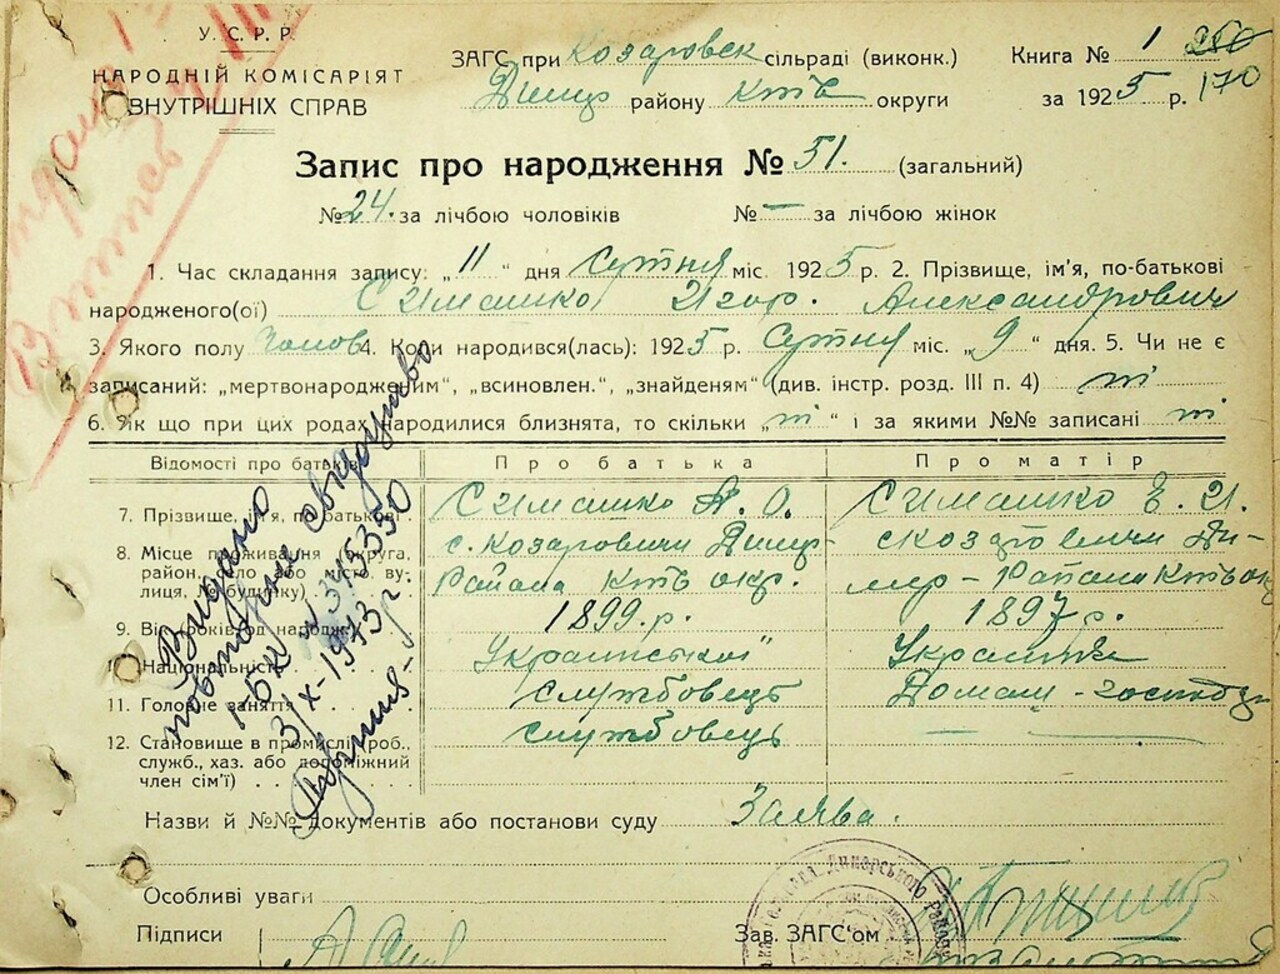 У. С. Р. Р.
НАРОДНІЙ КОМІСАРІЯТ
ВНУТРІШНІХ СПРАВ
ЗАГС при Козаровск сільраді (виконк.)
Димир району Київ округи
Книга № 1 250
за 1925 р. 170
Запис про народження № 51. (загальний)
№ 24. за лічбою чоловіків № — за лічбою жінок
1. Час складання запису: „11“ дня Сутня міс. 1925 р. 2. Прізвище, ім'я, по-батькові
народженого(ої) Симашко Игор. Александрович
3. Якого полу Чолов 4. Коли народився(лась): 1925 р. Сутня міс. „9“ дня. 5. Чи не є
записаний: „мертвонародженим“, „всиновлен.“, „знайденям“ (див. інстр. розд. III п. 4) ні
6. Як що при цих родах народилися близнята, то скільки „ні“ і за якими №№ записані ні
Відомості про батьків Про батька Про матір
7. Прізвище, ім'я, по-батькові Симашко А. О. Симашко Е. И.
8. Місце проживання (округа, район, село або місто, вулиця, № будинку) с. Козаровичи Димир- Района Київ окр. с Козаровичи Ди- мир - Района Київ ок
9. Вік (років од народж.) 1899. р. 1897 р.
10. Національність Украинської Украинка
11. Головне заняття Службовець Домаш - господ
12. Становище в промислі (роб., служб., хаз. або допоміжний член сім'ї) службовець —
Видано
повторне свідоцтво
I-БК № 345350
3/X-1973 р.
Назви й №№ документів або постанови суду Заява.
Особливі уваги
Підписи
Зав. ЗАГС'ом
Димарського Району